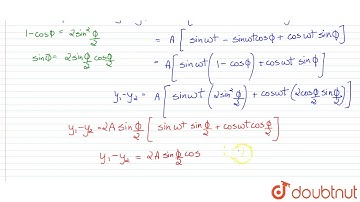 1-cosϕ = 2sin²ϕ/2
sinϕ = 2sinϕ/2 cosϕ/2
= A[sinωt - sinωtcosϕ + cosωt sinϕ]
= A[sinωt(1-cosϕ) + cosωt sinϕ]
y₁-y₂ = A[sinωt(2sin²ϕ/2) + cosωt(2cosϕ/2 sinϕ/2)]
y₁-y₂ = 2A sinϕ/2 [sinωt sinϕ/2 + cosωt cosϕ/2]
y₁-y₂ = 2A sinϕ/2 cos
doubtnut